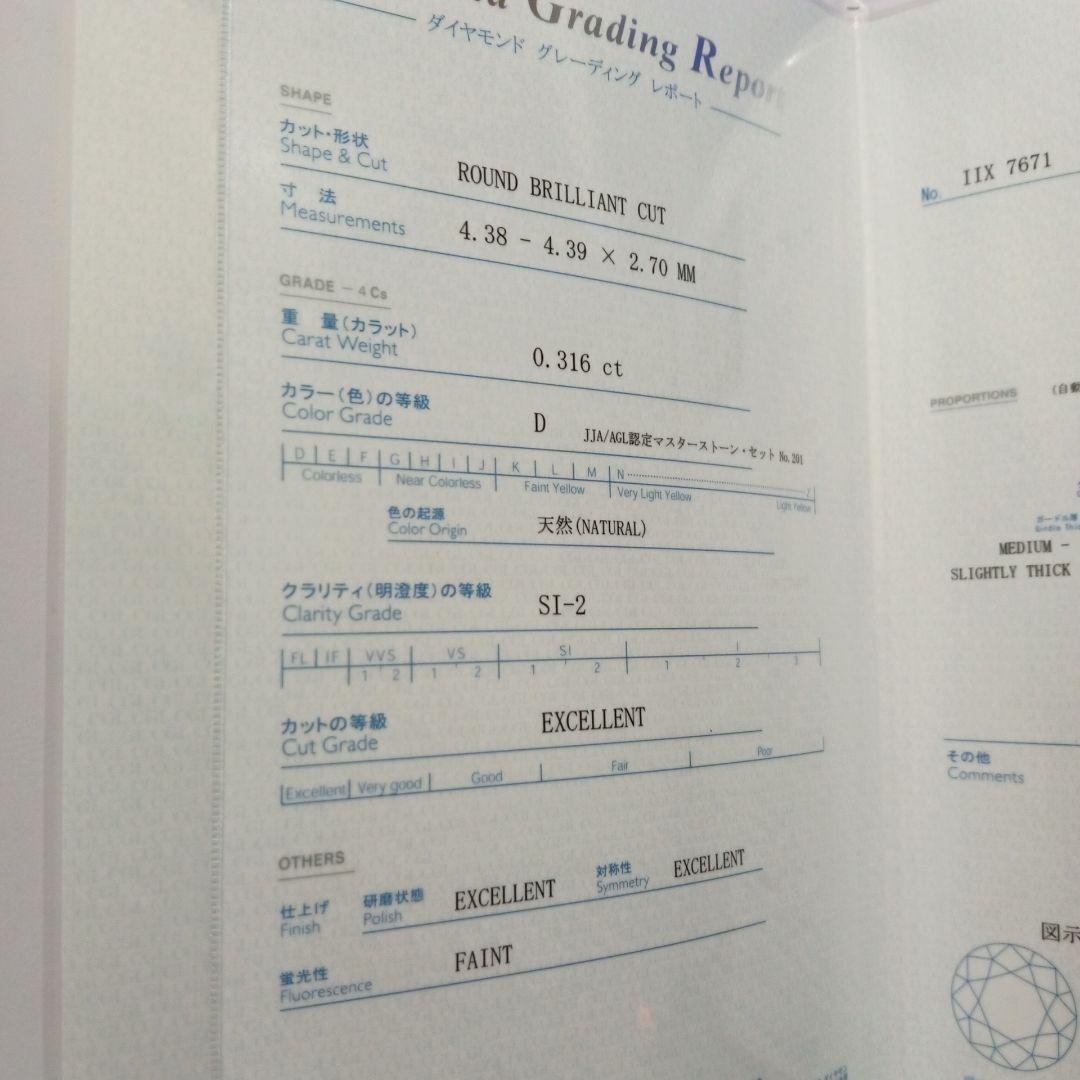 Grading Report
ダイヤモンド グレーディング レポート
SHAPE
カット・形状
Shape & Cut
ROUND BRILLIANT CUT
寸 法
Measurements
4.38 - 4.39 × 2.70 MM
GRADE - 4 Cs
重 量(カラット)
Carat Weight
0.316 ct
カラー(色)の等級
Color Grade
D JJA/AGL認定マスターストーン・セット No.201
D E F G H I J K L M N Z
Colorless Near Colorless Faint Yellow Very Light Yellow Light Yellow
色の起源
Color Origin
天然(NATURAL)
クラリティ(明澄度)の等級
Clarity Grade
SI-2
FL IF VVS VS SI I
1 2 1 2 1 2 1 2 3
カットの等級
Cut Grade
EXCELLENT
Excellent Very good Good Fair Poor
OTHERS
仕上げ
Finish
研磨状態
Polish
EXCELLENT
対称性
Symmetry
EXCELLENT
蛍光性
Fluorescence
FAINT
No. IIX 7671
PROPORTIONS (自動
ガードル厚
MEDIUM -
SLIGHTLY THICK
その他
Comments
図示